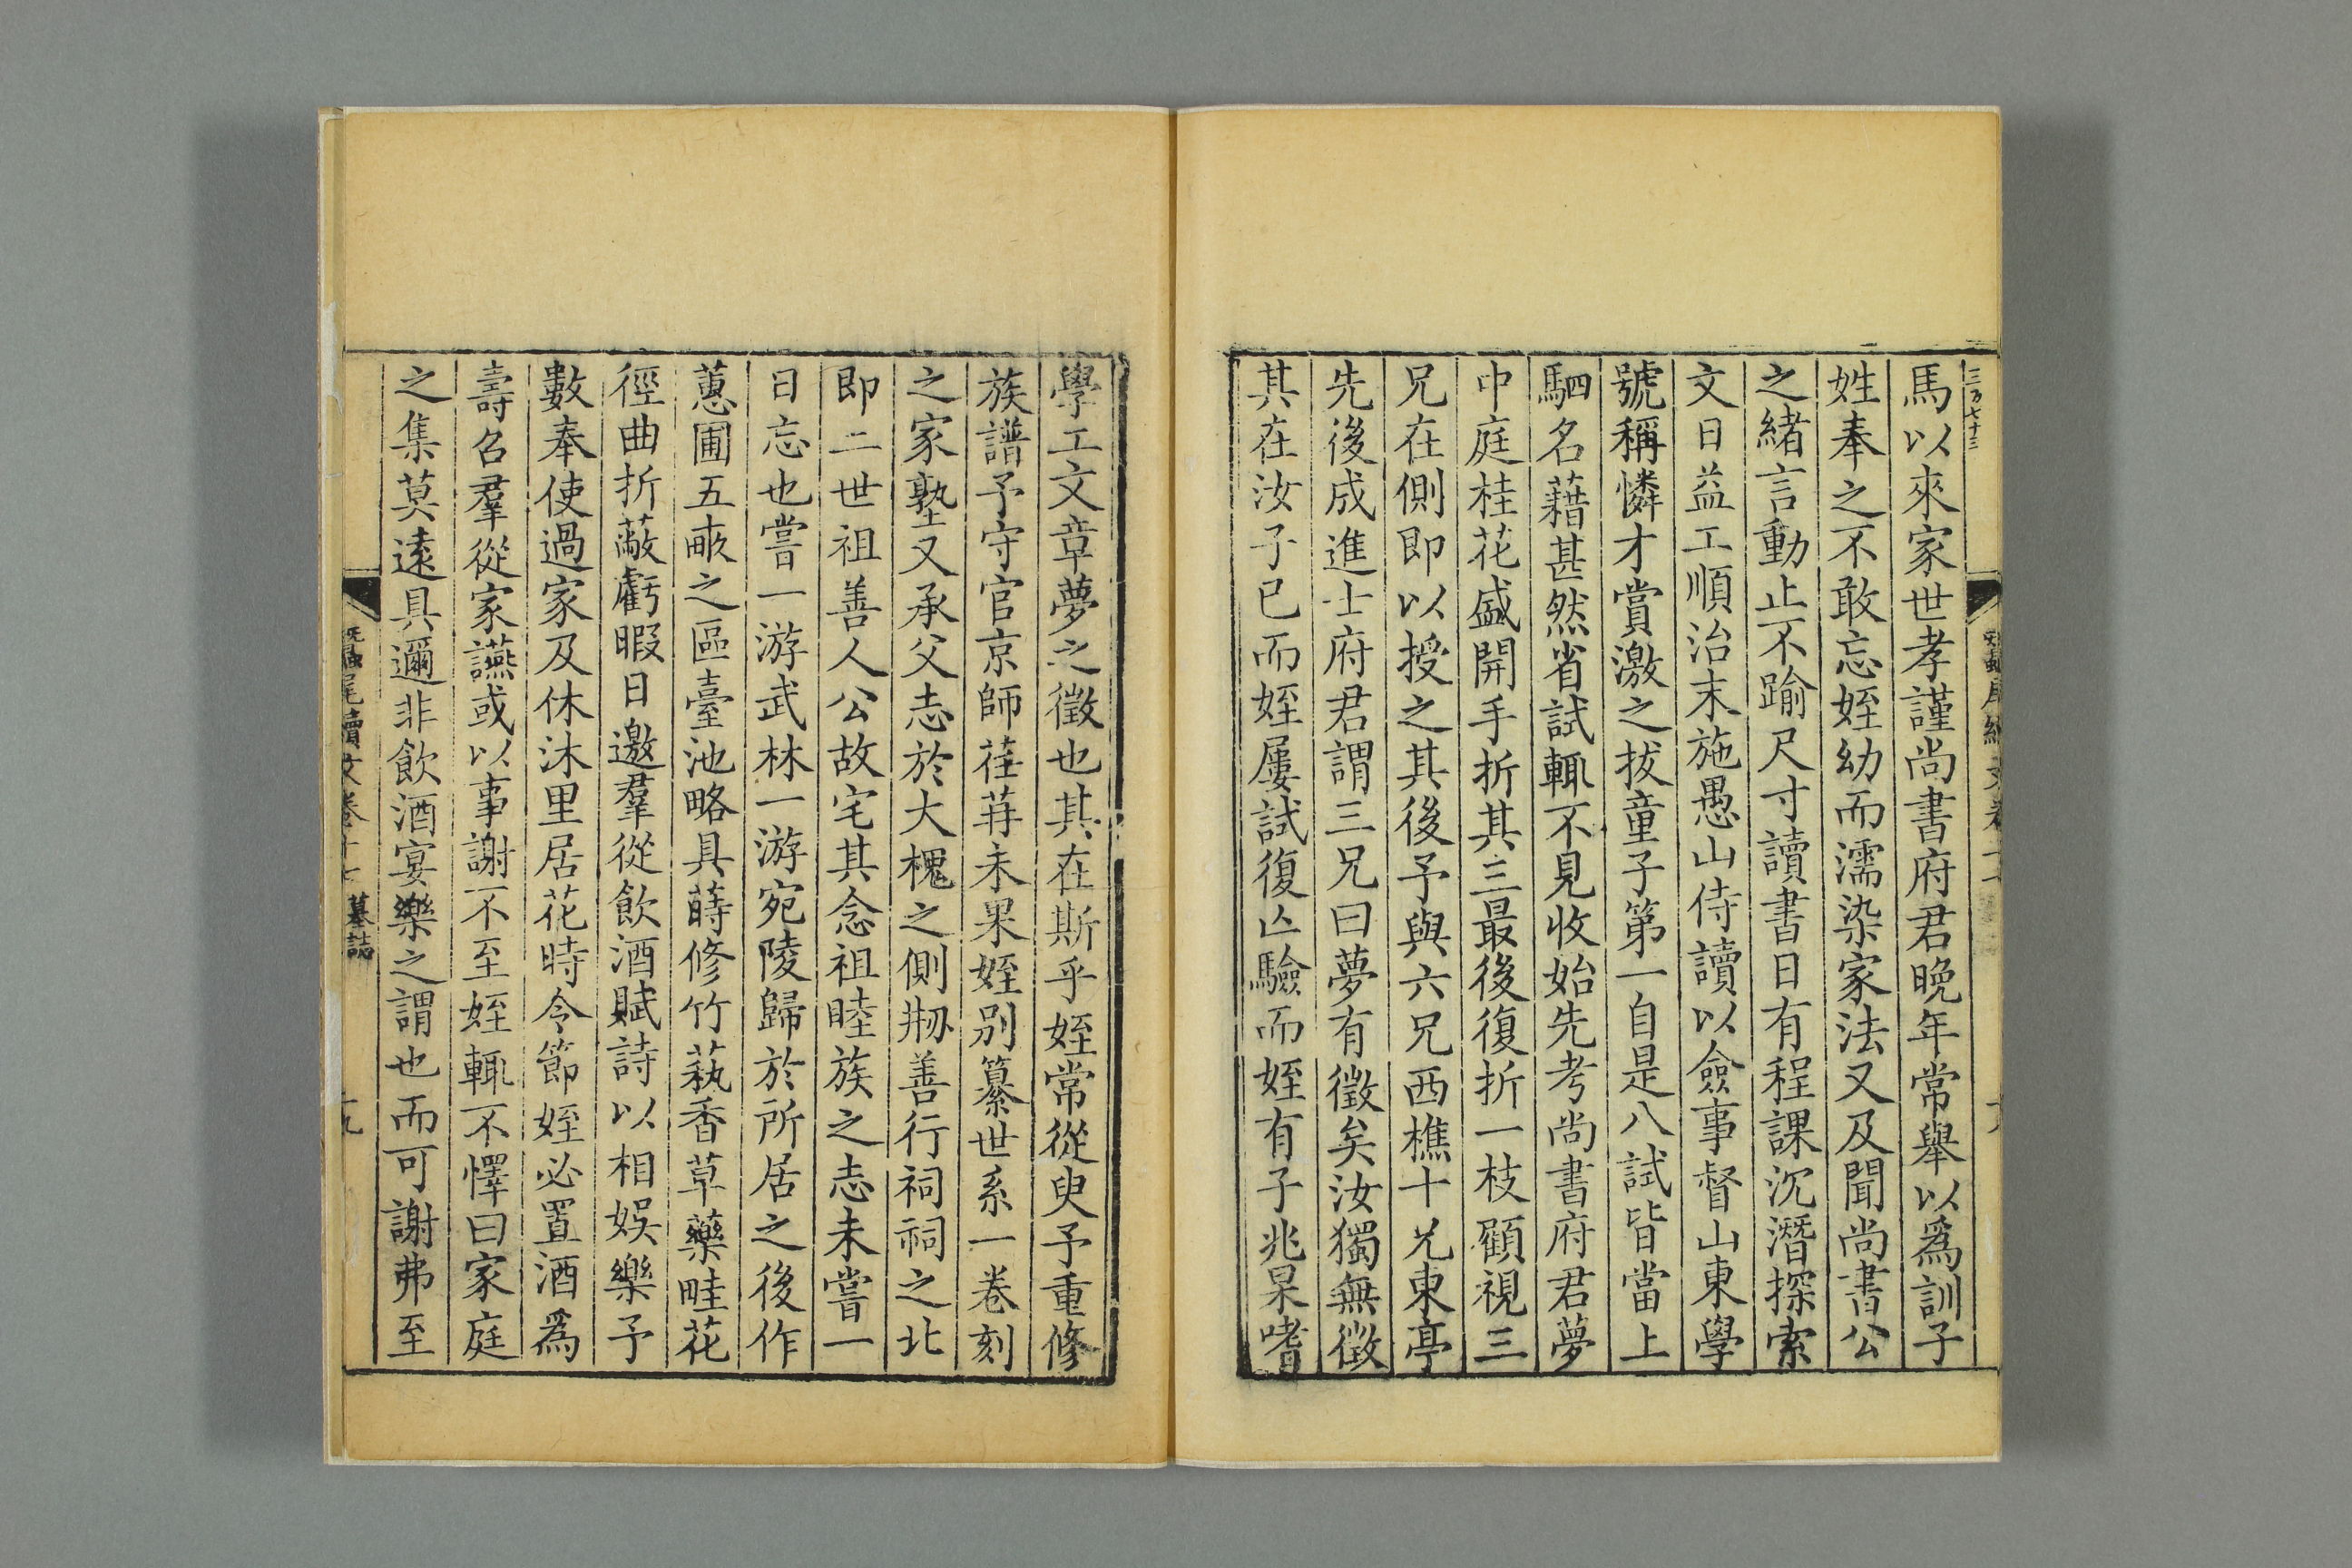 三万七十三
馬以來家世孝謹尚書府君晚年常舉以爲訓子
姓奉之不敢忘姪幼而濡染家法又及聞尚書公
之緒言動止不踰尺寸讀書日有程課沉潛探索
文日益工順治末施愚山侍讀以僉事督山東學
號稱憐才賞激之拔童子第一自是八試皆當上
駟名藉甚然省試輒不見收始先考尚書府君夢
中庭桂花盛開手折其三最後復折一枝顧視三
兄在側即以授之其後予與六兄西樵十兄東亭
先後成進士府君謂三兄曰夢有徵矣汝獨無徵
其在汝子已而姪屢試復亾驗而姪有子兆杲嗜
學工文章夢之徵也其在斯乎姪常從臾予重修
族譜予守官京師荏苒未果姪別纂世系一卷刻
之家塾又承父志於大槐之側剏善行祠祠之北
即二世祖善人公故宅其念祖睦族之志未嘗一
日忘也嘗一游武林一游宛陵歸於所居之後作
蕙圃五畝之區臺池略具蒔修竹蓺香草藥畦花
徑曲折蔽虧暇日邀羣從飲酒賦詩以相娛樂予
數奉使過家及休沐里居花時令節姪必置酒爲
壽召羣從家讌或以事謝不至姪輒不懌曰家庭
之集莫遠具邇非飲酒宴樂之謂也而可謝弗至
蠶尾續文卷十七 墓誌
十九